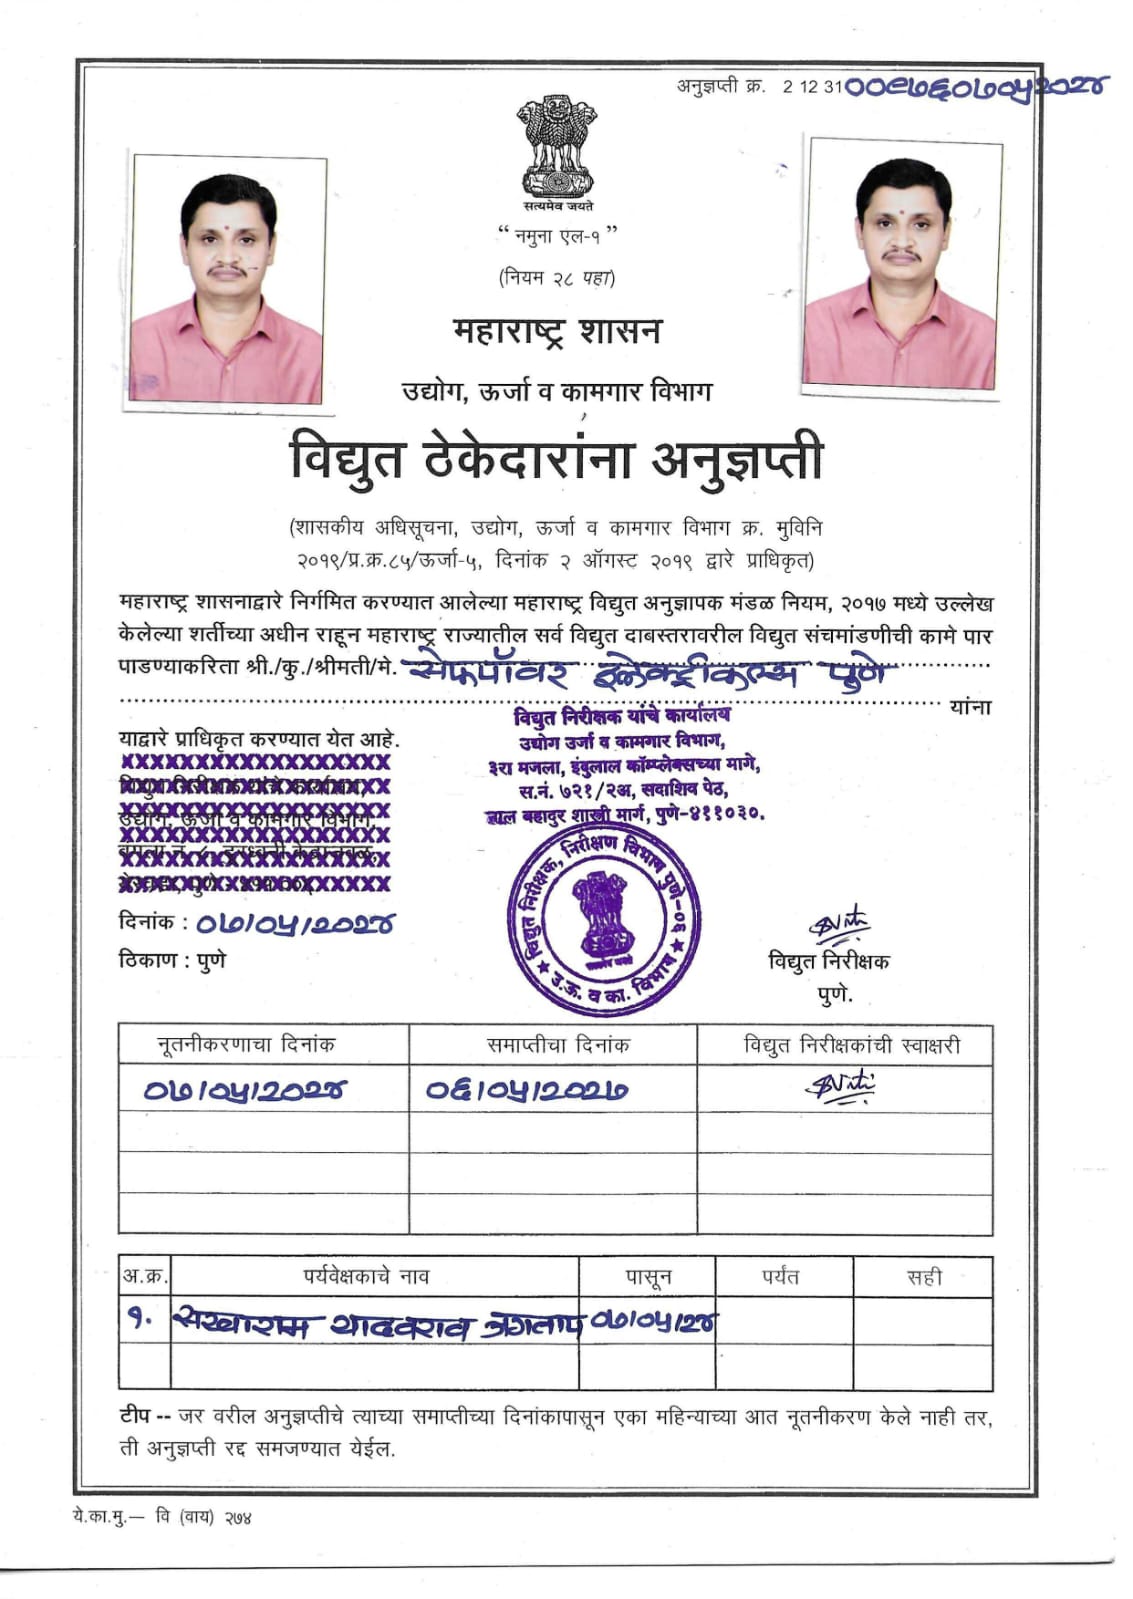 अनुज्ञप्ती क्र. 2 12 31००९७६०७०५२०२४
सत्यमेव जयते
“ नमुना एल-१ ”
(नियम २८ पहा)
महाराष्ट्र शासन
उद्योग, ऊर्जा व कामगार विभाग
विद्युत ठेकेदारांना अनुज्ञप्ती
(शासकीय अधिसूचना, उद्योग, ऊर्जा व कामगार विभाग क्र. मुविनि
२०१९/प्र.क्र.८५/ऊर्जा-५, दिनांक २ ऑगस्ट २०१९ द्वारे प्राधिकृत)
महाराष्ट्र शासनाद्वारे निर्गमित करण्यात आलेल्या महाराष्ट्र विद्युत अनुज्ञापक मंडळ नियम, २०१७ मध्ये उल्लेख
केलेल्या शर्तीच्या अधीन राहून महाराष्ट्र राज्यातील सर्व विद्युत दाबस्तरावरील विद्युत संचमांडणीची कामे पार
पाडण्याकरिता श्री./कु./श्रीमती/मे. सेफपॉवर इलेक्ट्रीकल्स पुणे
यांना
याद्वारे प्राधिकृत करण्यात येत आहे.
विद्युत निरीक्षक यांचे कार्यालय
उद्योग उर्जा व कामगार विभाग,
३रा मजला, इंदुलाल कॉम्प्लेक्सच्या मागे,
स.नं. ७२१/२अ, सदाशिव पेठ,
लाल बहादुर शास्त्री मार्ग, पुणे-४११०३०.
विद्युत निरीक्षक, निरीक्षण विभाग पुणे-०६
उ.ऊ. व का. विभाग
दिनांक : ०७/०५/२०२४
ठिकाण : पुणे
विद्युत निरीक्षक
पुणे.
नूतनीकरणाचा दिनांक समाप्तीचा दिनांक विद्युत निरीक्षकांची स्वाक्षरी
०७/०५/२०२४ ०६/०५/२०२७
अ.क्र. पर्यवेक्षकाचे नाव पासून पर्यंत सही
१. सखाराम यादवराव जगताप ०७/०५/२४
टीप -- जर वरील अनुज्ञप्तीचे त्याच्या समाप्तीच्या दिनांकापासून एका महिन्याच्या आत नूतनीकरण केले नाही तर,
ती अनुज्ञप्ती रद्द समजण्यात येईल.
ये.का.मु.— वि (वाय) २७४